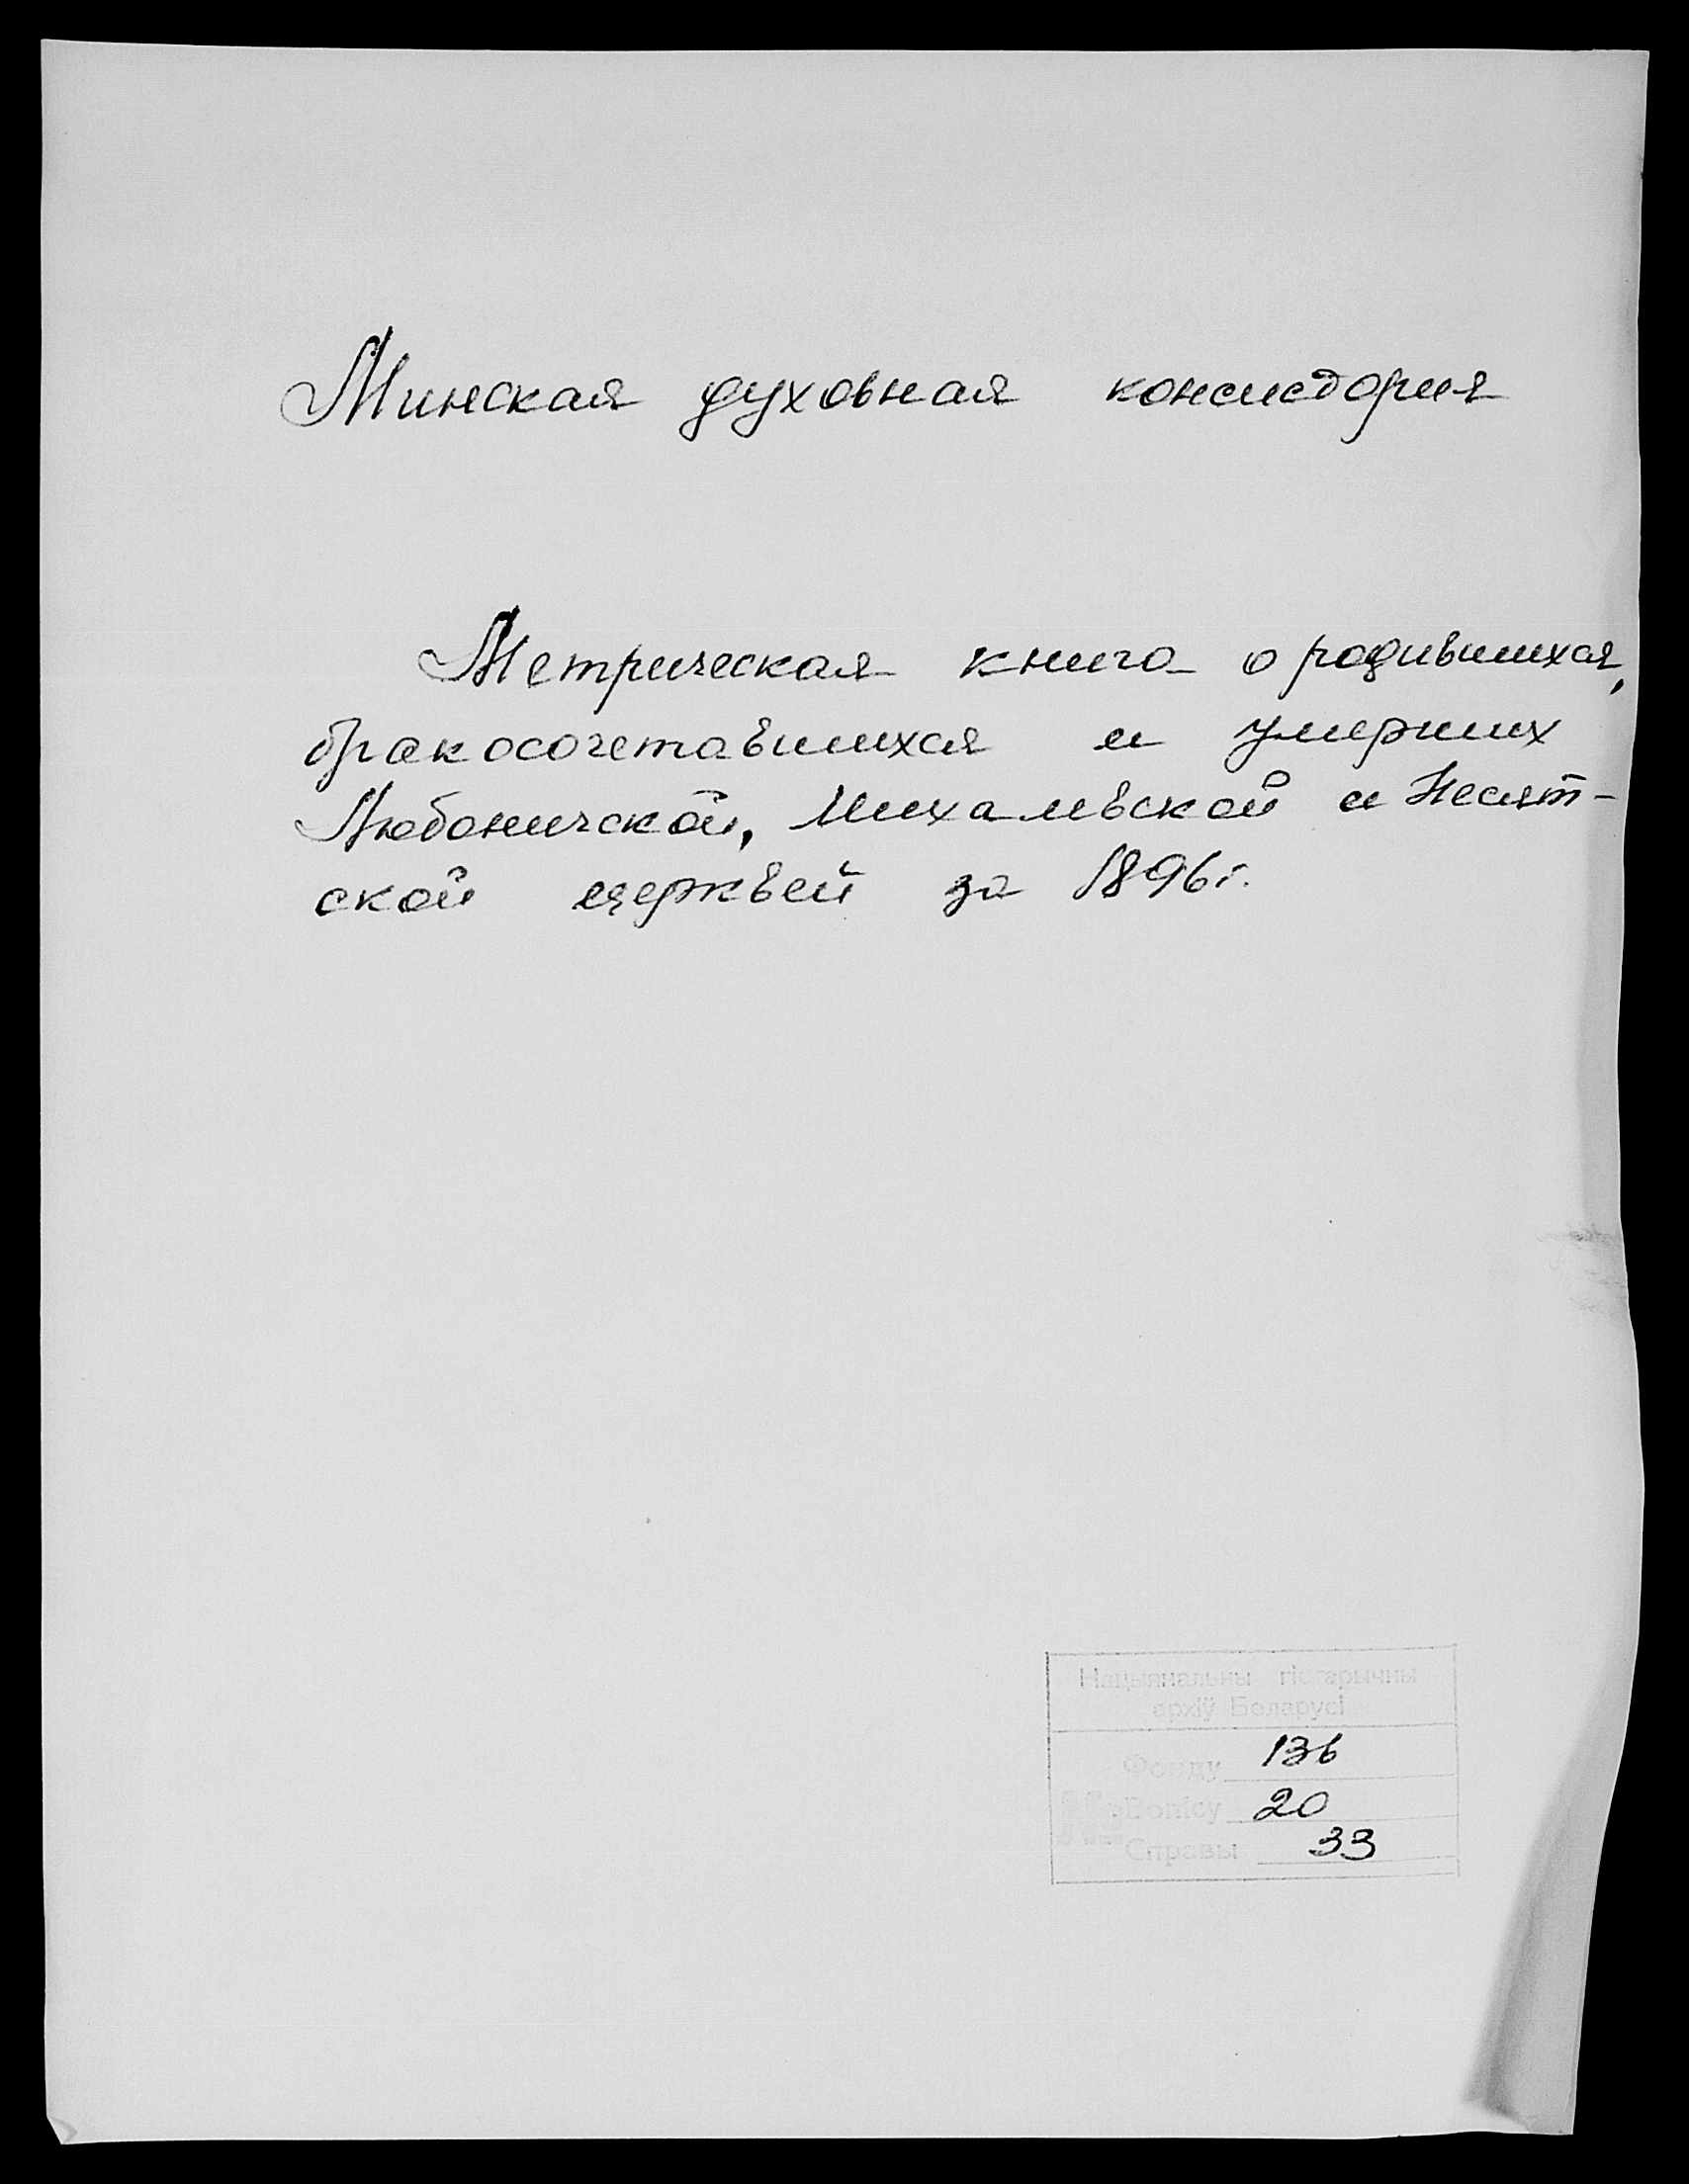 Минская духовная консистория
Метрическая книга о родившихся,
бракосочетавшихся и умерших
Любоничской, Михалевской и Несят-
ской церквей за 1896 г.
Нацыянальны гістарычны
архіў Беларусі
Фонду 136
Вопісу 20
Справы 33